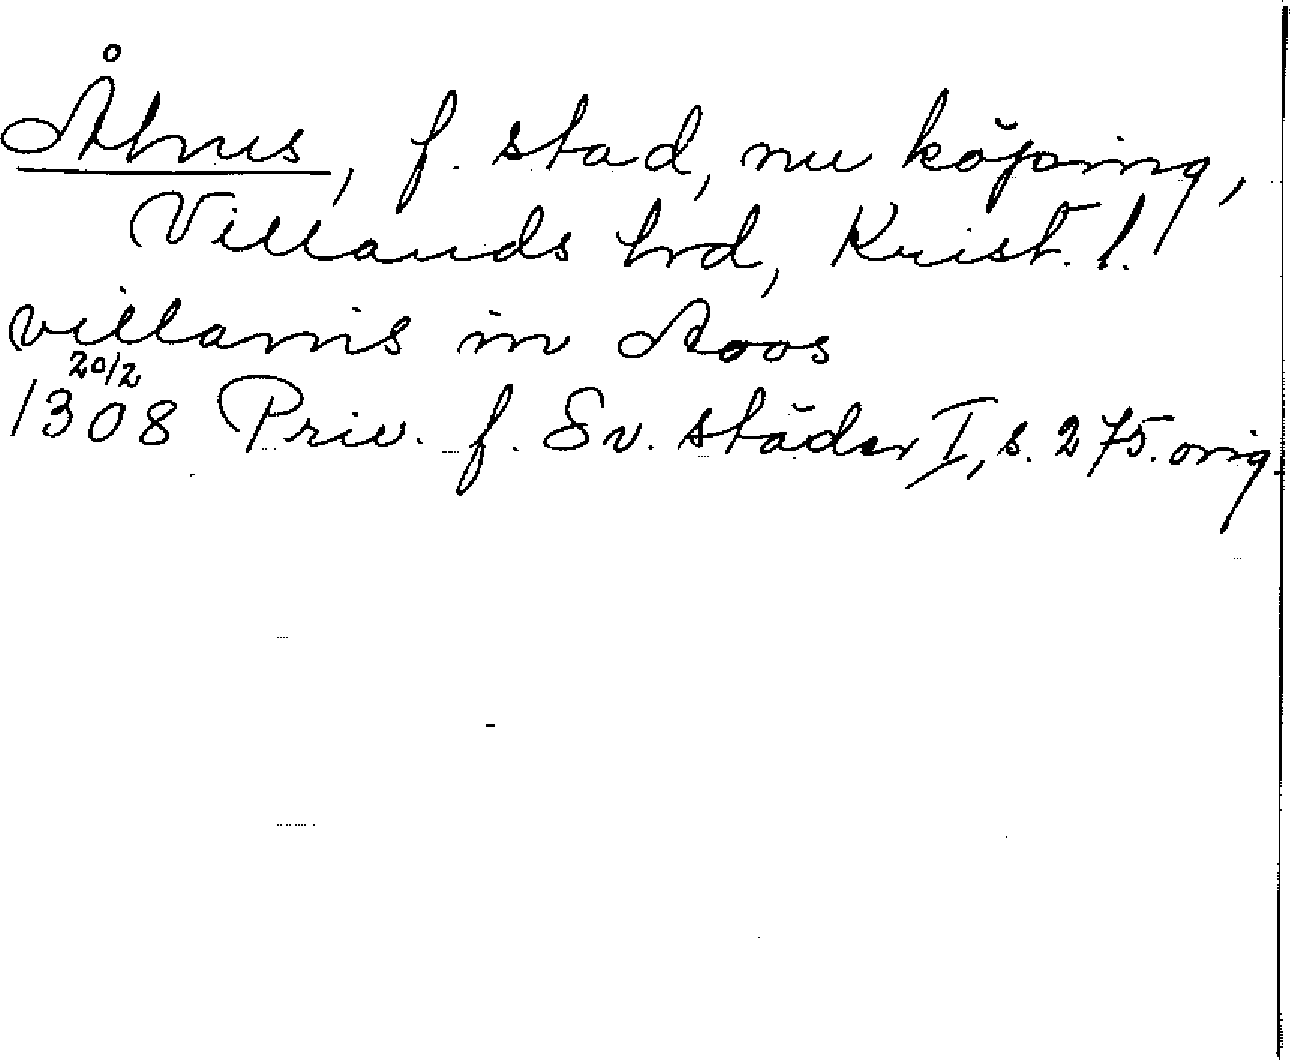 Åhus, f. stad, nu köping,
Villands hrd, Krist. l.
villanis in Aoos
1308 20/2 Priv. f. Sv. städer I, s. 275. orig.